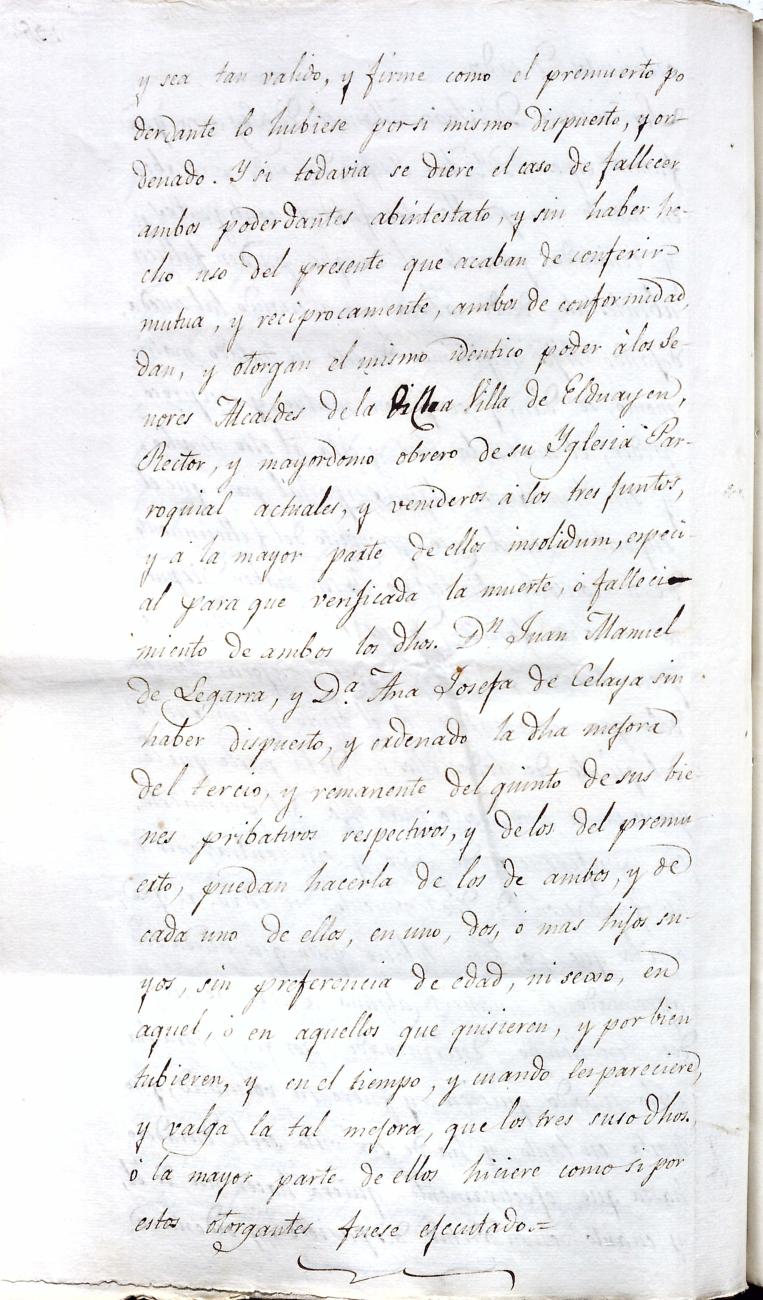 y sea tan valido, y firme como el premuerto po
derdante lo hubiese por si mismo dispuesto, y or-
denado. Y si todavia se diere el caso de fallecer
ambos poderdantes abintestato, y sin haber he-
cho uso del presente que acaban de conferir
mutua, y reciprocamente, ambos de conformidad,
dan, y otorgan el mismo identico poder à los Se-
nores Alcaldes de la dicha Villa de Elduayen,
Rector, y mayordomo obrero de su Yglesia Par-
roquial actuales, y venideros à los tres juntos,
y a la mayor parte de ellos insolidum, especi-
al para que verificada la muerte, ó falleci-
miento de ambos los dhos. Dn Juan Manuel
de Legarra, y Da. Ana Josefa de Celaya sin
haber dispuesto, y ordenado la dha mejora
del tercio, y remanente del quinto de sus bie-
nes pribativos respectivos, y de los del premu
erto, puedan hacerla de los de ambos, y de
cada uno de ellos, en uno, dos, ó mas hijos su-
yos, sin preferencia de edad, ni sexo, en
aquel, ó en aquellos que quisieren, y por bien
tubieren, y en el tiempo, y cuando les pareciere,
y valga la tal mejora, que los tres suso dhos.
ó la mayor parte de ellos hiciere como si por
estos otorgantes fuese ejecutado.=